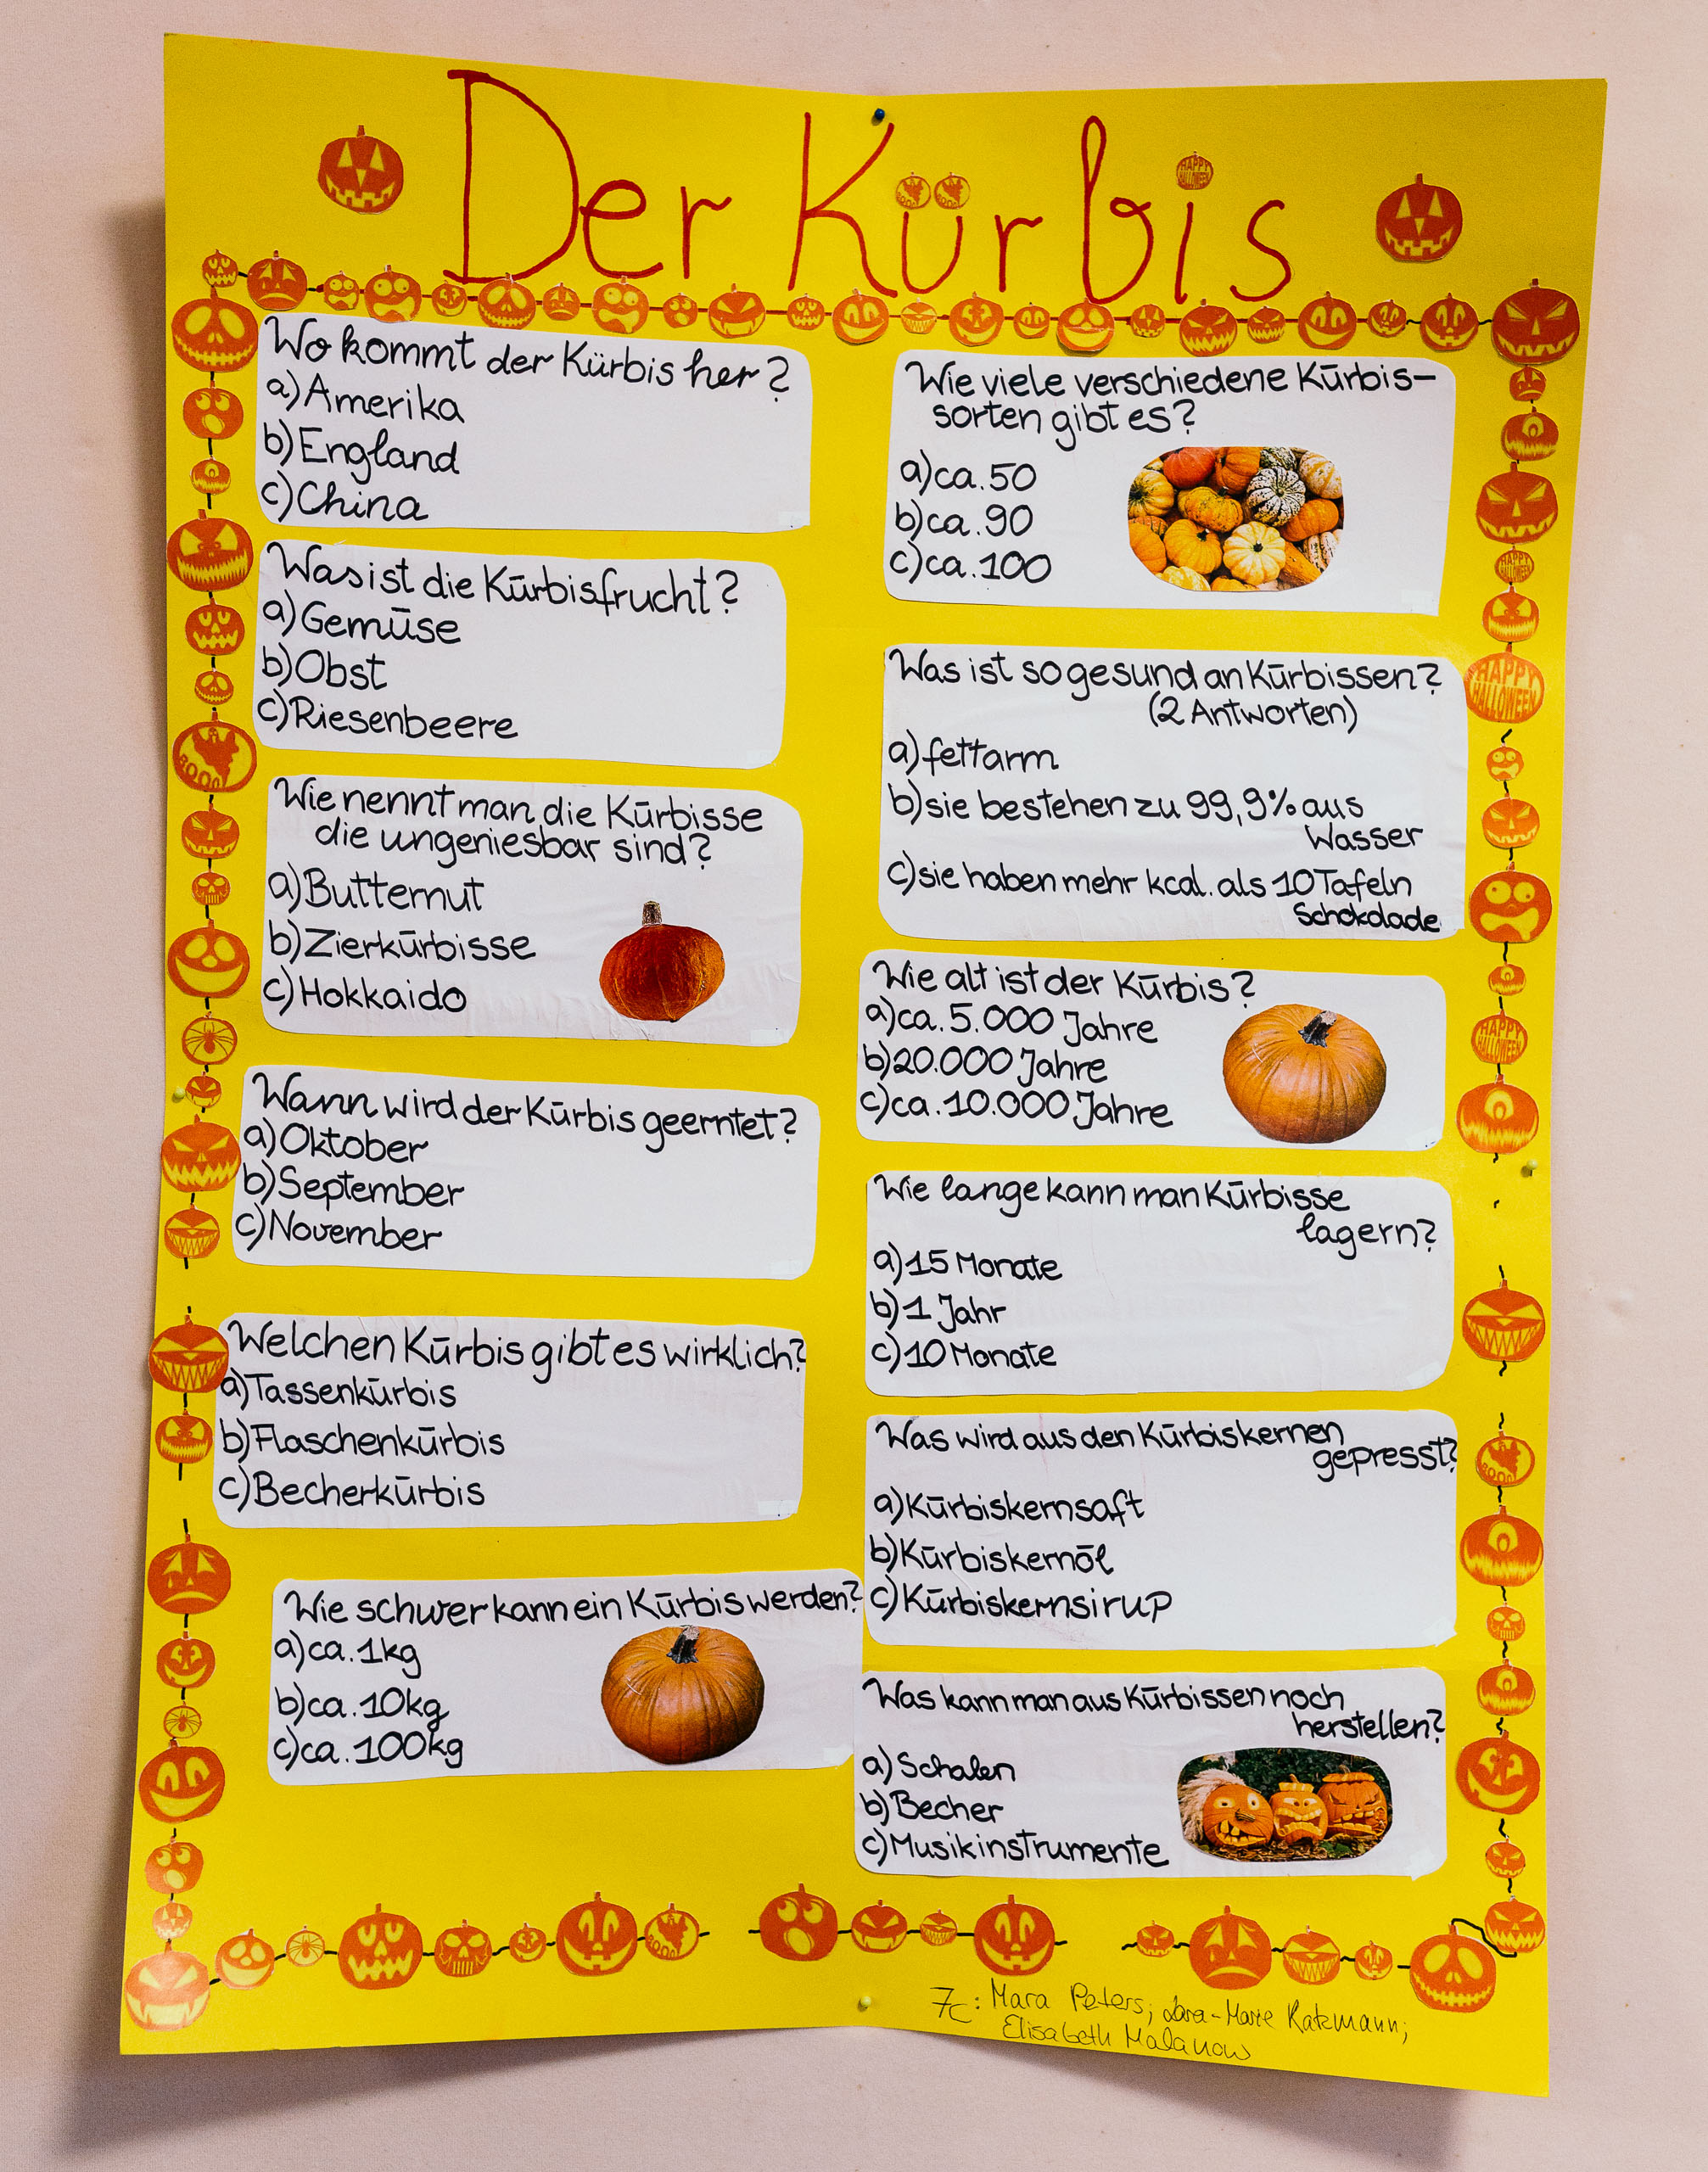 Der Kürbis
Wo kommt der Kürbis her?
a) Amerika
b) England
c) China
Was ist die Kürbisfrucht?
a) Gemüse
b) Obst
c) Riesenbeere
Wie nennt man die Kürbisse
die ungeniesbar sind?
a) Butternut
b) Zierkürbisse
c) Hokkaido
Wann wird der Kürbis geerntet?
a) Oktober
b) September
c) November
Welchen Kürbis gibt es wirklich?
a) Tassenkürbis
b) Flaschenkürbis
c) Becherkürbis
Wie schwer kann ein Kürbis werden?
a) ca. 1kg
b) ca. 10kg
c) ca. 100kg
Wie viele verschiedene Kürbis-
sorten gibt es?
a) ca. 50
b) ca. 90
c) ca. 100
Was ist so gesund an Kürbissen?
(2 Antworten)
a) fettarm
b) sie bestehen zu 99,9% aus
Wasser
c) sie haben mehr kcal. als 10 Tafeln
Schokolade
Wie alt ist der Kürbis?
a) ca. 5.000 Jahre
b) 20.000 Jahre
c) ca. 10.000 Jahre
Wie lange kann man Kürbisse
lagern?
a) 15 Monate
b) 1 Jahr
c) 10 Monate
Was wird aus den Kürbiskernen
gepresst?
a) Kürbiskernsaft
b) Kürbiskernöl
c) Kürbiskernsirup
Was kann man aus Kürbissen noch
herstellen?
a) Schalen
b) Becher
c) Musikinstrumente
HAPPY
HALLOWEEN
HAPPY
HALLOWEEN
HAPPY
HALLOWEEN
HAPPY
HALLOWEEN
BOOO
BOOO
BOOO
7c: Mara Peters; Lara-Marie Ratzmann;
Elisabeth Malanow